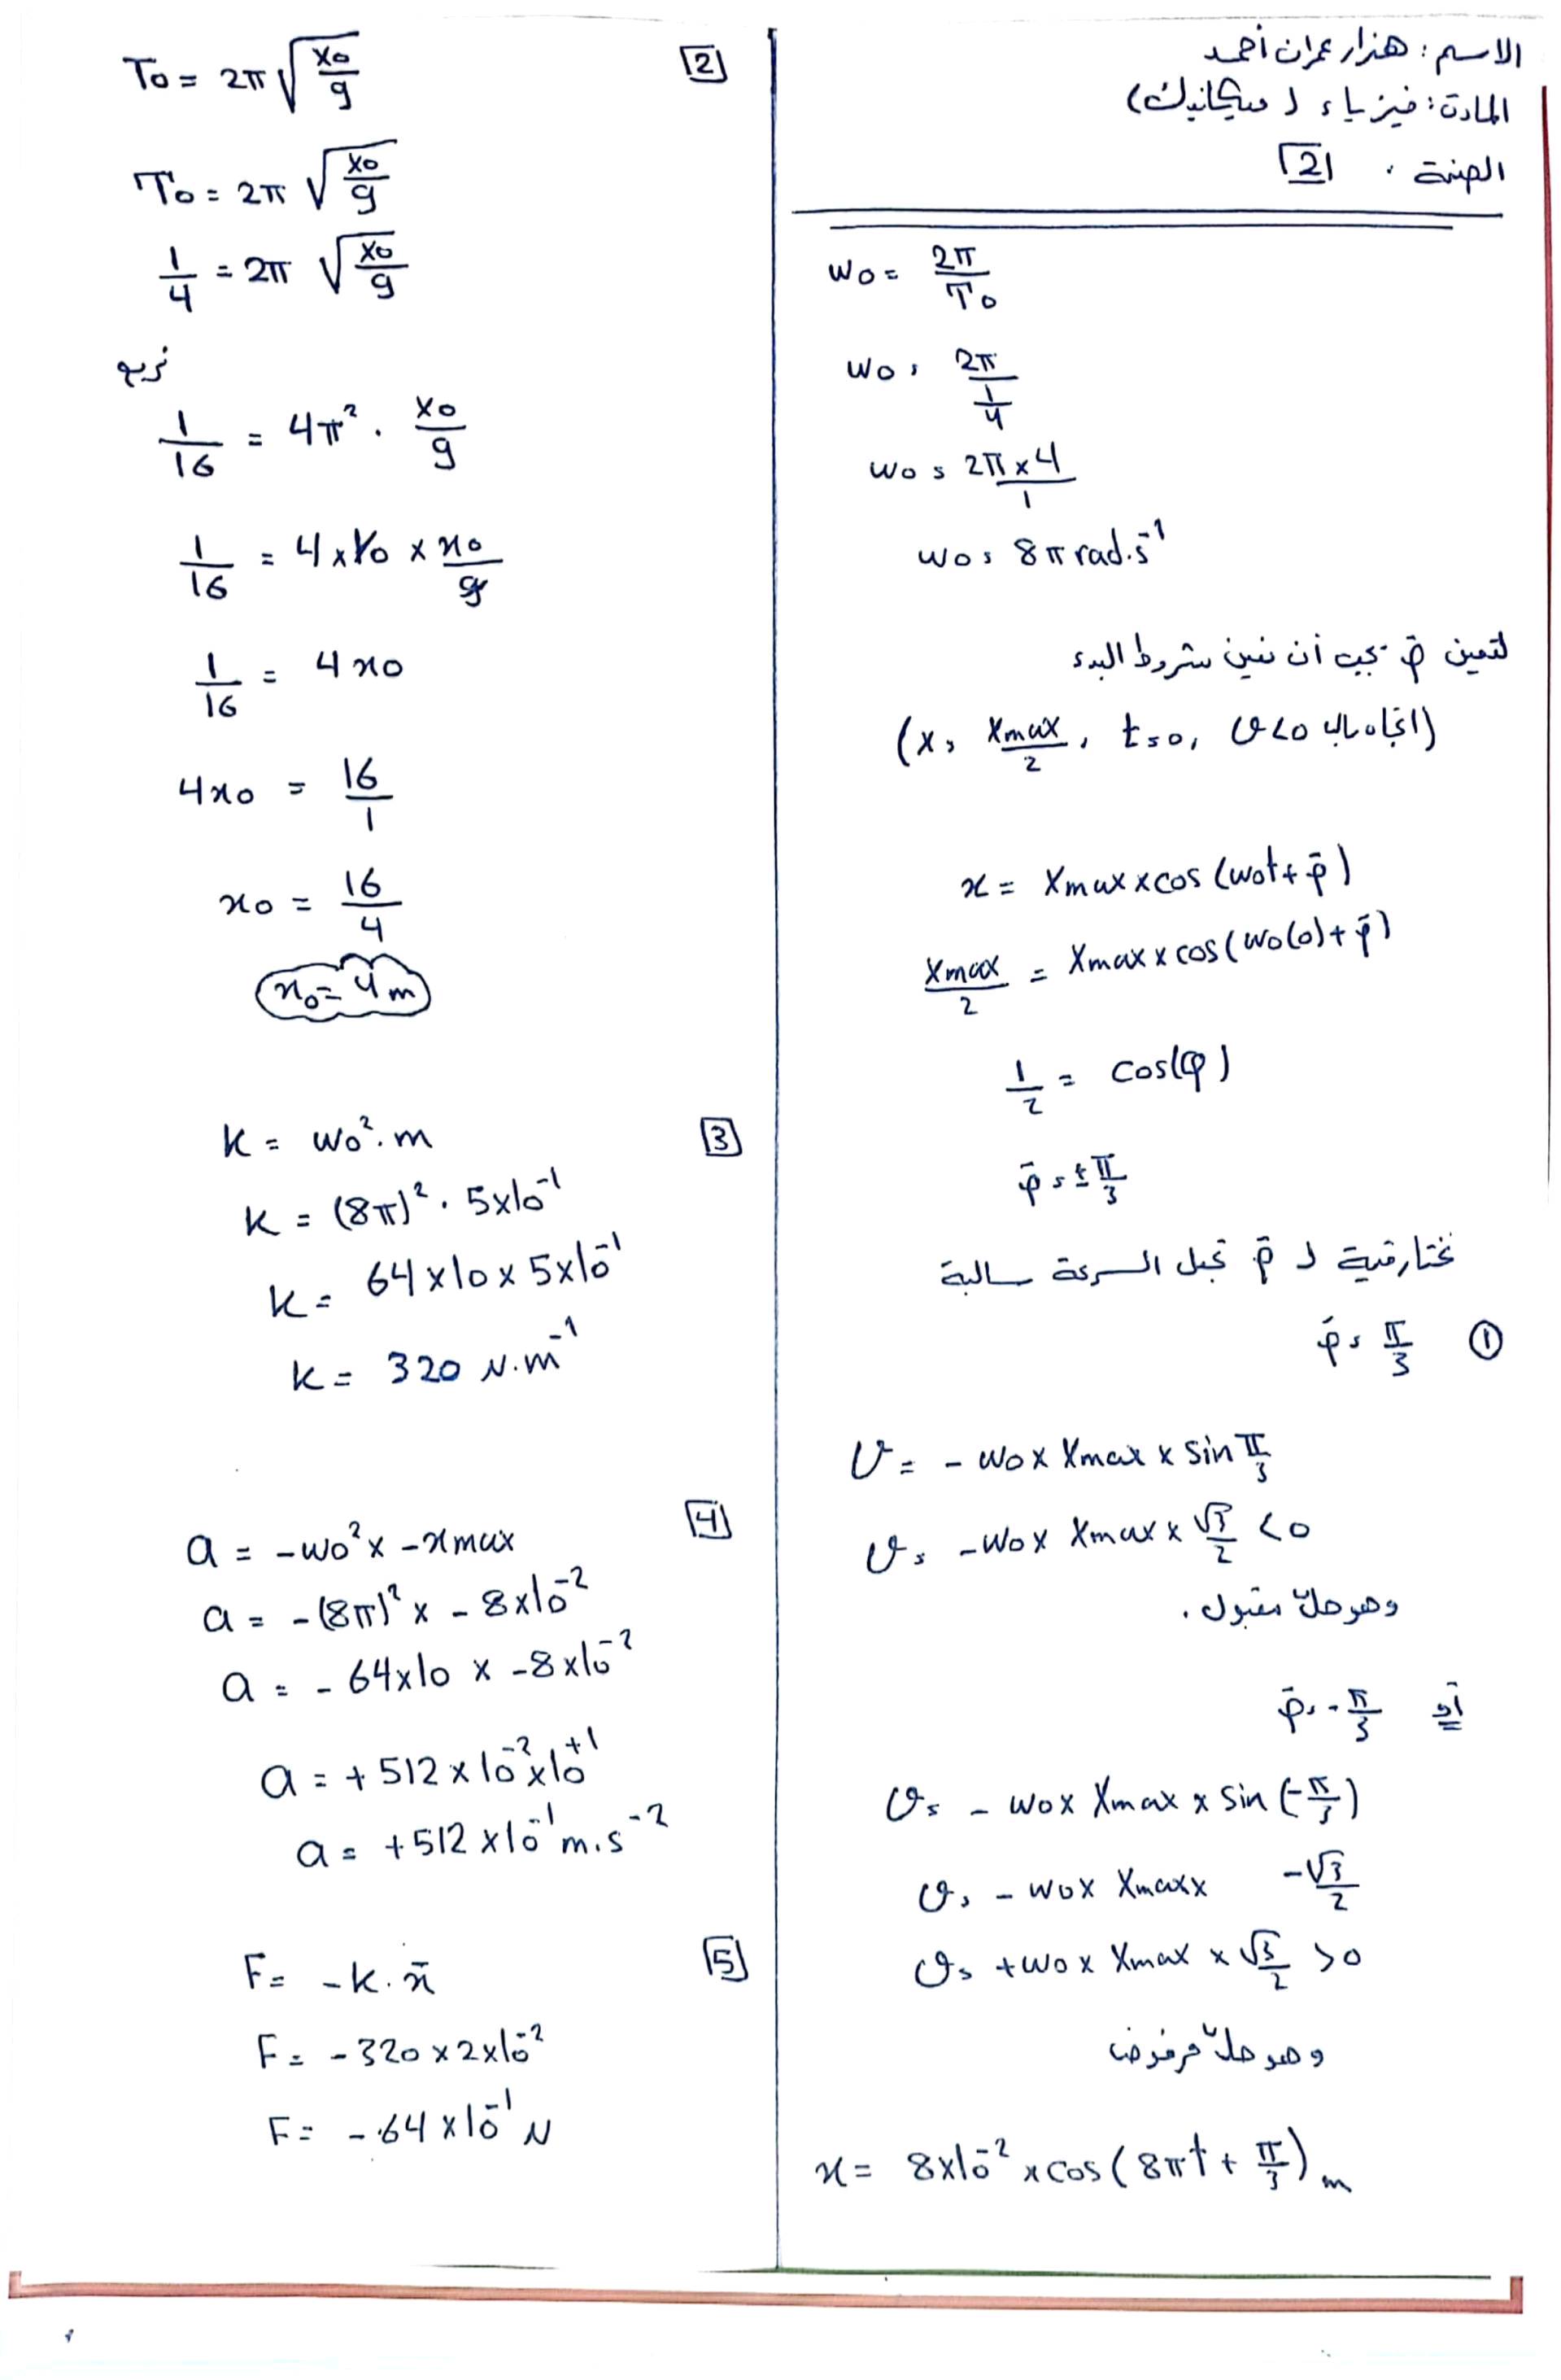 الاسم : هزار عمران أحمد
المادة : فيزياء ( ميكانيك )
الصيغة . [2]
wo = 2π / To
wo = 2π / 1/4
wo = 2π x 4 / 1
wo = 8π rad.s⁻¹
لتعين φ̄ يجب أن نبين شروط البدء
(x = Xmax/2 , t=0 , v<0 اتجاه سالب)
x = Xmax x cos (wot + φ̄)
Xmax/2 = Xmax x cos (wo(0) + φ̄)
1/2 = cos(φ)
φ̄ = ± π/3
نختار قيمة لـ φ̄ تجعل السرعة سالبة
① φ̄ = π/3
v = - wo x Xmax x sin π/3
v = - wo x Xmax x √3/2 < 0
وهو حلّ مقبول .
أو φ̄ = - π/3
v = - wo x Xmax x sin (-π/3)
v = - wo x Xmax x -√3/2
v = + wo x Xmax x √3/2 > 0
وهو حلّ مرفوض
x = 8x10⁻² x cos (8πt + π/3) m
[2] To = 2π √(xo/g)
To = 2π √(xo/g)
1/4 = 2π √(xo/g)
نربع
1/16 = 4π² . xo/g
1/16 = 4 x 10 x xo/g
1/16 = 4xo
4xo = 16/1
xo = 16/4
xo = 4m
[3] k = wo² . m
k = (8π)² . 5x10⁻¹
k = 64 x 10 x 5x10⁻¹
k = 320 N.m⁻¹
[4] a = -wo² x -xmax
a = -(8π)² x - 8x10⁻²
a = - 64x10 x -8x10⁻²
a = + 512 x 10⁻² x 10⁺¹
a = +512 x 10⁻¹ m.s⁻²
[5] F = - k . x̄
F = - 320 x 2x10⁻²
F = - 64 x 10⁻¹ N